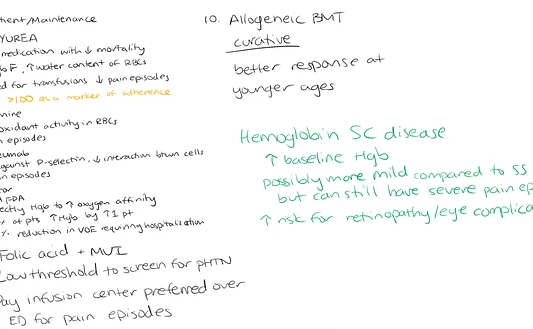 tient/Maintenance
YUREA
medication with ↓ mortality
b F, ↑ water content of RBCs
ed for transfusions ↓ pain episodes
>100 as a marker of adherence
mine
oxidant activity in RBCs
n episodes
eumab
against P-selectin, ↓ interaction btwn cells
in episodes
tor
FDA
ectly Hgb to ↑ oxygen affinity
% of pts ↑ Hgb by ↑ 1 pt
% reduction in VOE requiring hospitalization
Folic acid + MVI
Low threshold to screen for pHTN
Day infusion center preferred over
ED for pain episodes
10. Allogeneic BMT
curative
better response at
younger ages
Hemoglobin SC disease
↑ baseline Hgb
possibly more mild compared to SS
but can still have severe pain ep
↑ risk for retinopathy/eye complica